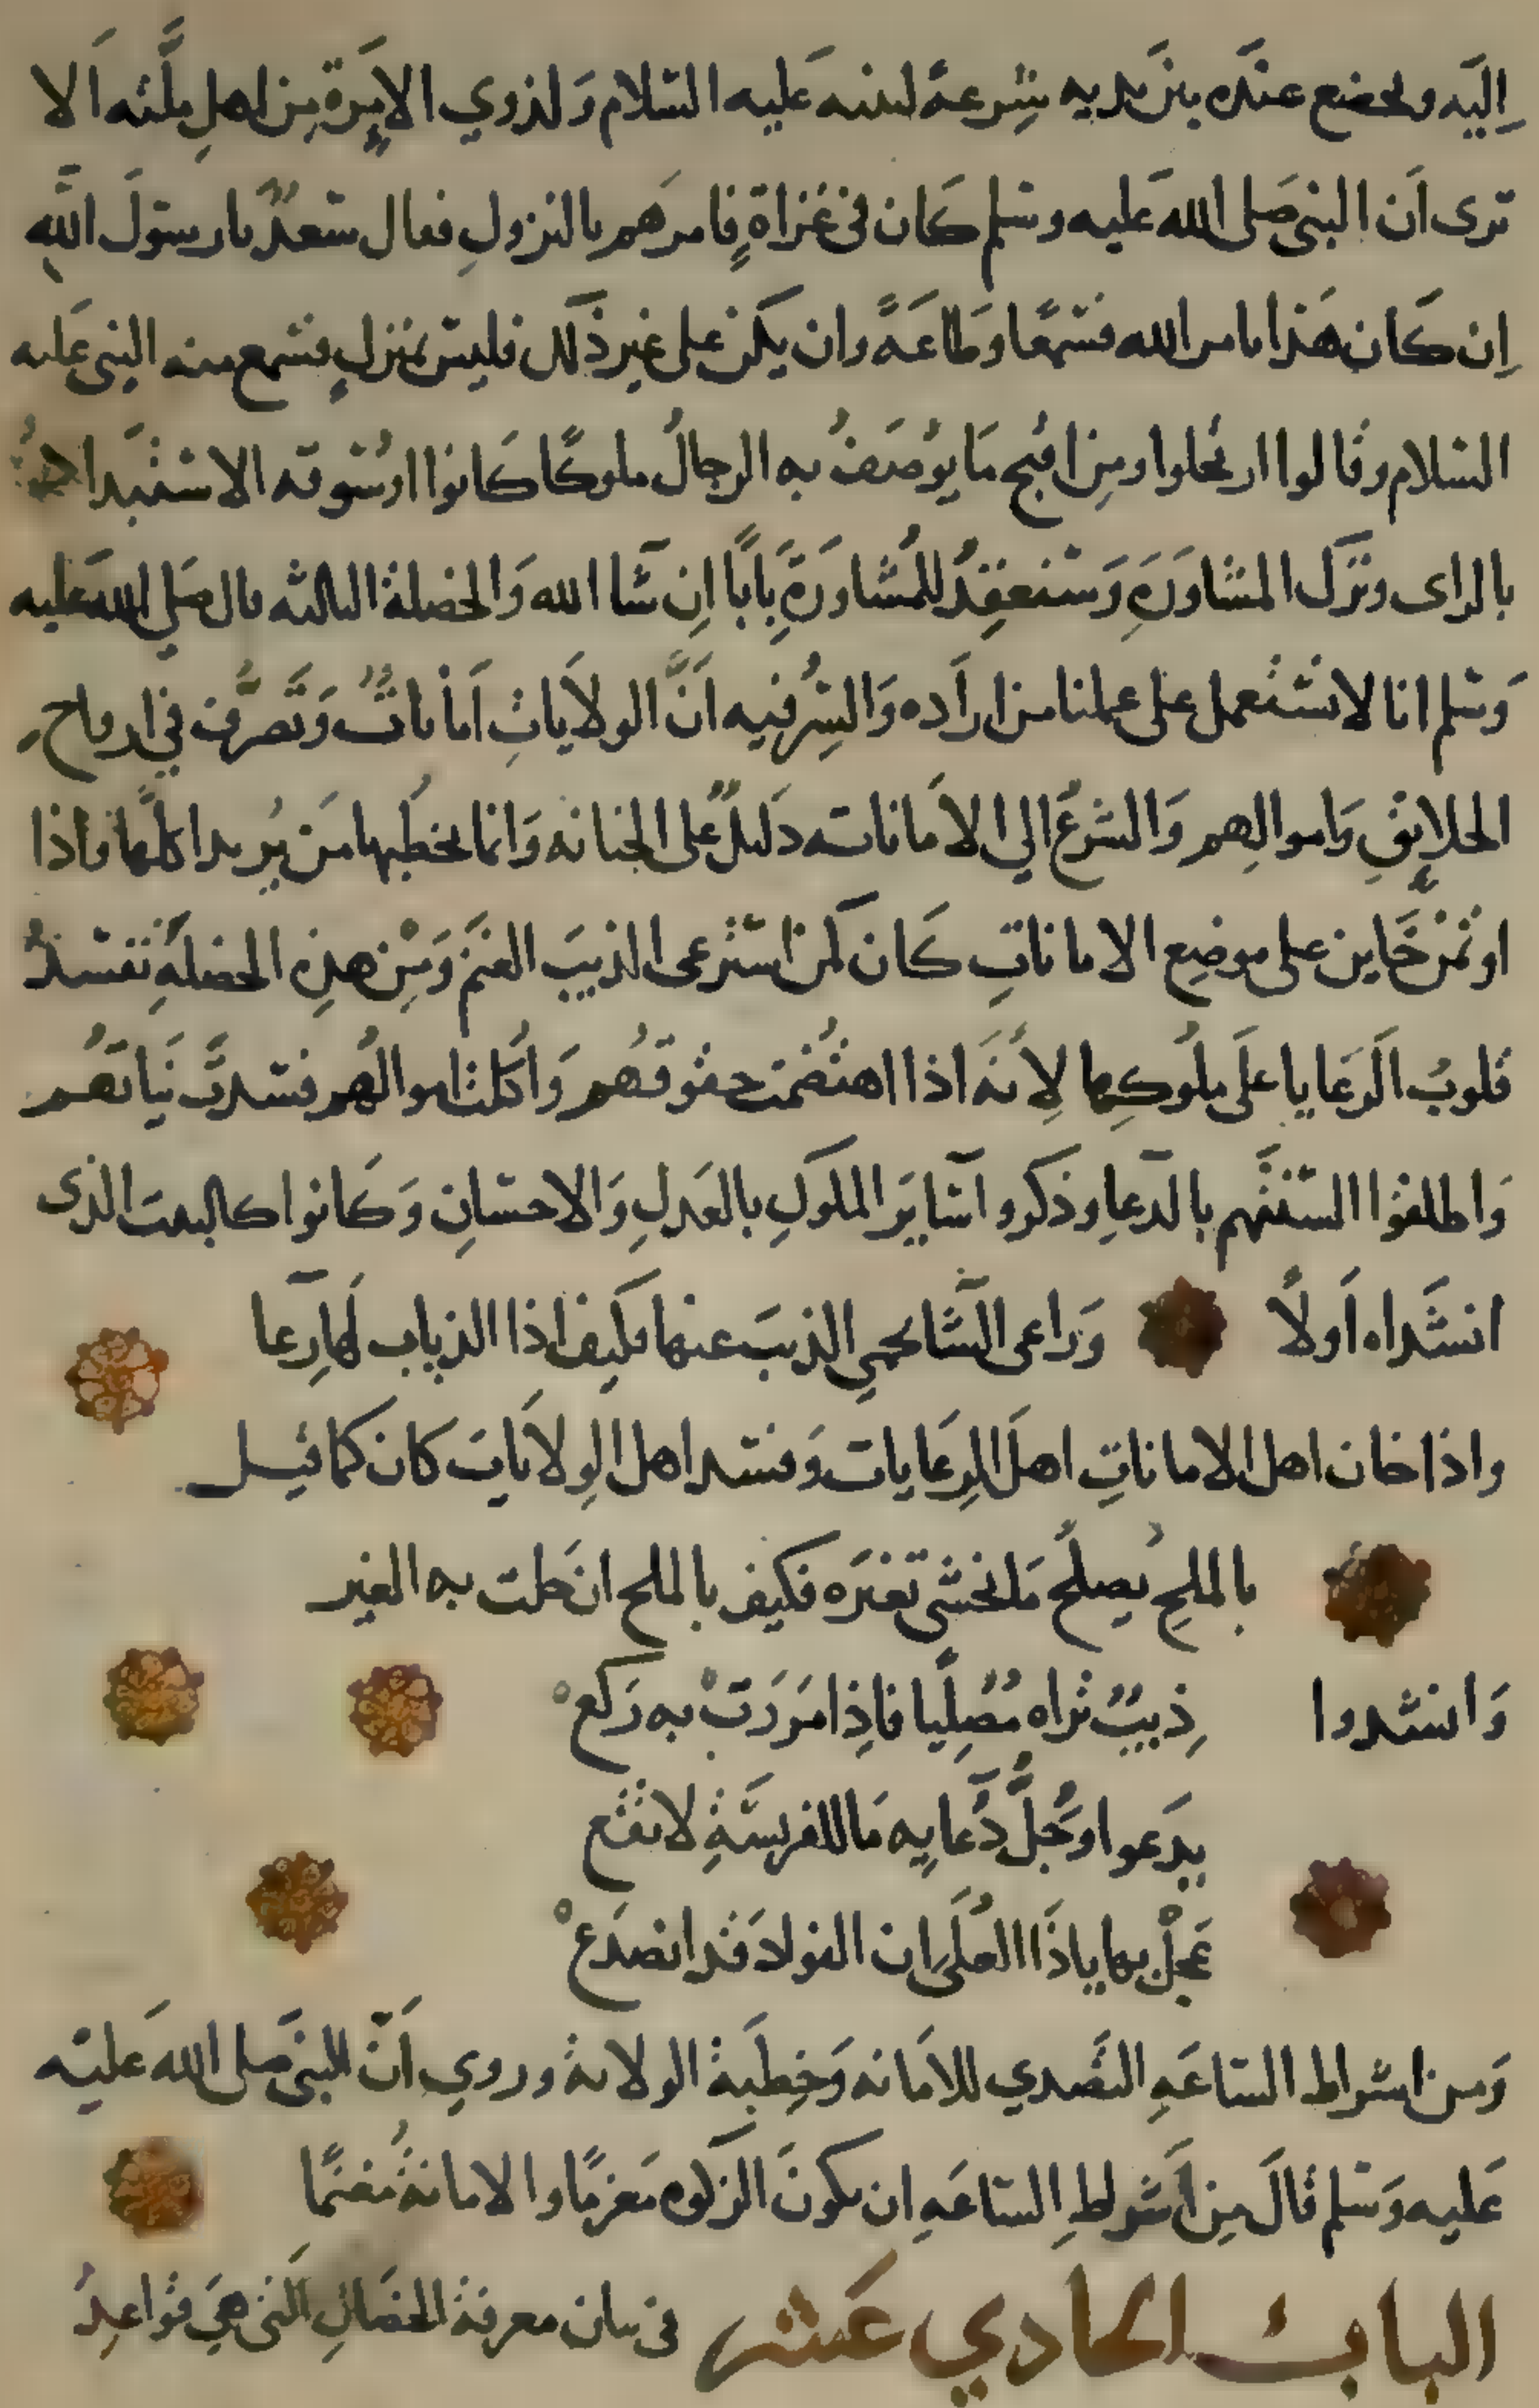 إليه ويخضع عنده بين يديه شرعة لسنته عليه السلام ولذوي الإمرة من اهل ملته ألا
ترى أن النبى صلى الله عليه وسلم كان فى غزاةٍ فامرهم بالنزولِ فقال سعدٌ يا رسولَ اللهِ
إن كان هذا بامر الله فسمعًا وطاعةً وان يكن على غير ذلك فليس بمنزلٍ فسمع منه النبى عليه
السلام وقالوا ارتحلوا ومن اقبح ما يُوصَفُ به الرجالُ ملوكًا كانوا او سُوقه الاستبداد
بالراى وترك المشاورَةِ وسنعقِدُ للمُشاورَةِ بابًا إن شا الله والخصلة الثالثه قال صلي الله عليه
وسلم انا لا نستعمل على عملنا من اراده والسِّر فيه أنَّ الولاياتِ أماناتٌ وتصرُّف في ارواحِ
الخلايقِ واموالهم والتسرُّع الي الامانات دليلٌ على الخيانه وانما يخطبها من يُريد اكلها فاذا
اوتمن خاين على موضع الاماناتِ كان كمن استرعى الذيبَ الغنم ومن هذه الخصلةِ تفسدُ
قلوبُ الرعايا على ملُوكها لأنه اذا اهتُضمت حقوقهُم وأكلت اموالهُم فسدت نياتهُم
واطلقوا السنتهم بالدعا وذكروا ساير الملوكِ بالعدلِ والاحسانِ وكانوا كالبيت الذى
انشداه أولاً وراعى الشا يحمي الذيبَ عنها فكيف اذا الذياب لها رعا
واذا خان اهل الاماناتِ اهلَ الرعايات وفسد اهل الولايات كان كما قيل
بالملحِ يصلحُ ما نخشى تغيره فكيف بالملح ان حلت به الغير
وانشدوا ذِيبٌ تراه مُصلِّيا فاذا مررتْ به ركعْ
يدعوا وجُلُّ دُعايه ما للفريسَةِ لا تقع
عجلْ بها يا ذا العُلَى إن الفولاد قد انصدعْ
ومن اشراط الساعَةِ التصدي للامانه وخِطبة الولاية وروي أن النبى صلى الله عليه
عليه وسلم قال من أشراطِ الساعَةِ ان يكونَ الزكوه مغرمًا والامانةُ مغنمًا
البابُ الحادي عشر فى بيان معرفة الخصالِ التى هي قواعدُ